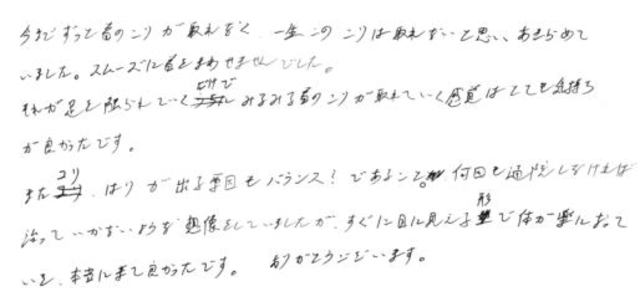 今までずっと首のこりが取れなく、一生このこりは取れないと思い、あきらめて
いました。スムーズに首をまわせませんでした。
それが足を触られていくだけで みるみる首のこりが取れていく感覚はとても気持ち
が良かったです。
また コリ、はりが出る要因もバランス！であること。何回も通院しなければ
治っていかないような想像をしていましたが、すぐに目に見える形で体が楽になって
いき、本当に来て良かったです。 ありがとうございます。